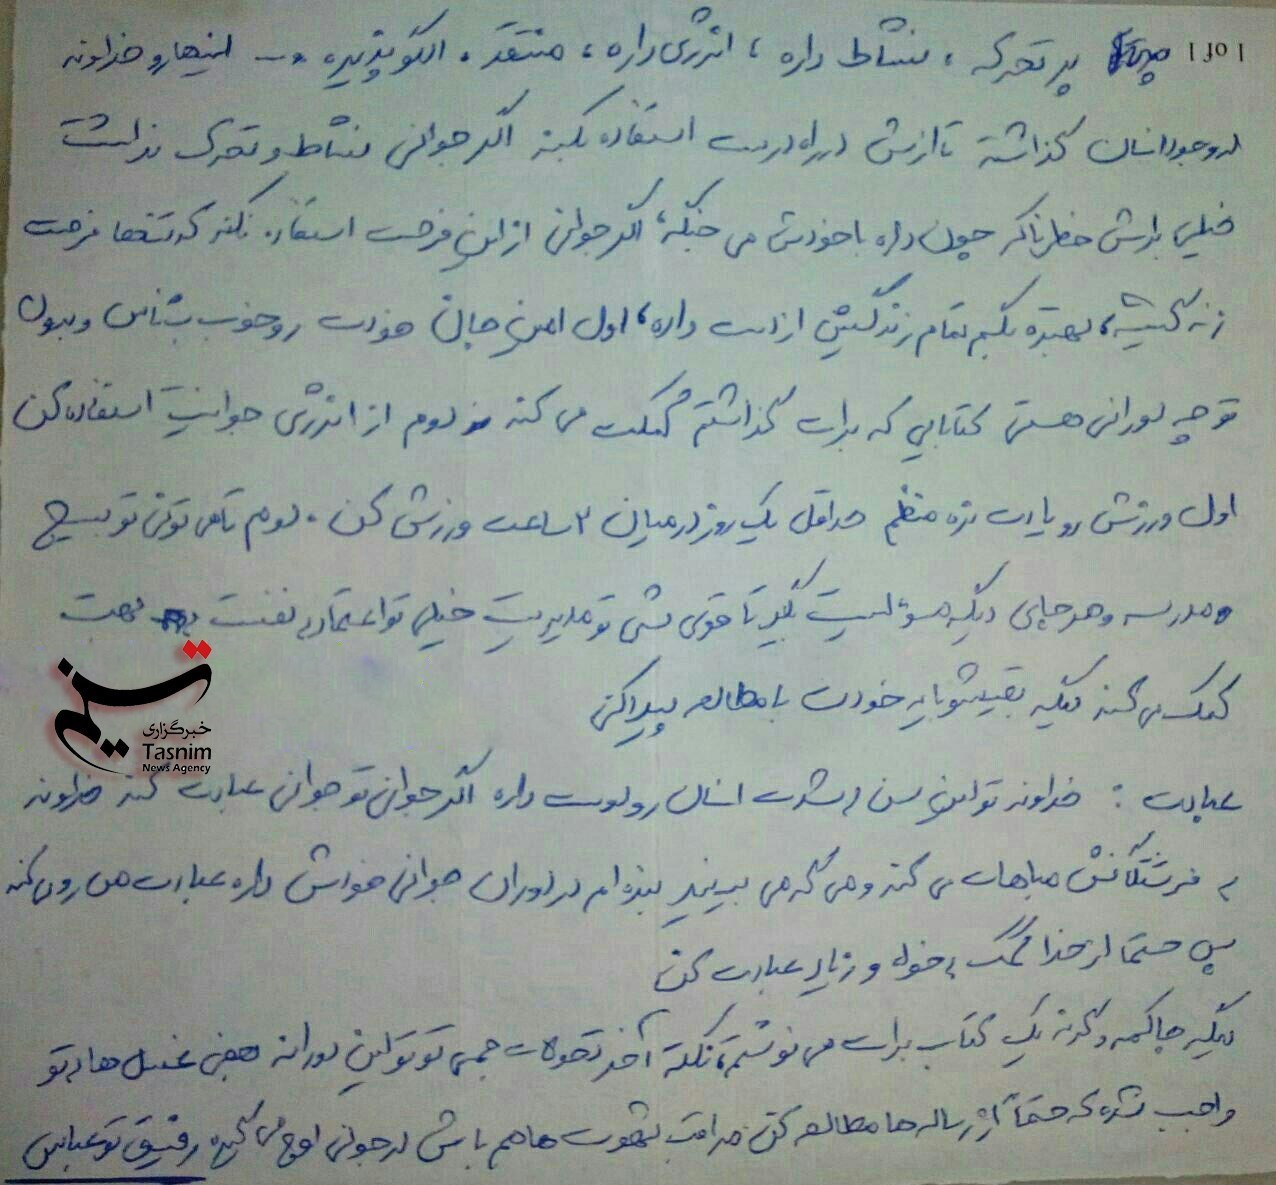 پر تحرکه ، نشاط داره ، انرژی داره ، منتقد ، الگو پذیره ... اینها رو خداوند
در وجود انسان گذاشته تا ازش در راه درست استفاده بکنه اگر جوانی نشاط و تحرک نداشت
خیلی براش خطرناکه چون داره با خودش می جنگه، اگر جوانی از این فرصت استفاده نکنه که تنها فرصت
زندگیشه، بهتره بگیم تمام زندگیش از دست داره، اول امیر جان خودت رو خوب بشناس و بدون
تو چه دورانی هستی کتابایی که برات گذاشتم کمکت می کنه دوم از انرژی جوانیت استفاده کن
اول ورزش رو یادت نره منظم حداقل یک روز در میان ۲ ساعت ورزش کن . دوم تا می تونی تو بسیج
و مدرسه و هر جای دیگه مسؤلیت بگیر تا قوی بشی تو مدیریت خیلی تو اعتماد به نفست بهت
کمک می کنه دیگه بقیشو باید خودت با مطالعه پیدا کنی
عبادت : خداوند تو این سن به شدت انسان رو دوست داره اگر جوانی تو جوانی عبادت کنه خداوند
به فرشتگانش مباهات می کنه و می گه می بینید بنده ام در دوران جوانی خودش داره عبادت من رو می کنه
پس حتما از خدا کمک بخواه و زیاد عبادت کن
دیگه جا کمه وگرنه یک کتاب برات می نوشتم، نکته آخر تحولات جسمی تو تو این دورانه یعنی غسل ها به تو
واجب شده که حتماً از رساله ها مطالعه کن مراقب شهوت ها هم باش در جوانی اوج می گیره رفیق تو عباس
1 of 1
تسنیم
خبرگزاری
Tasnim
News Agency